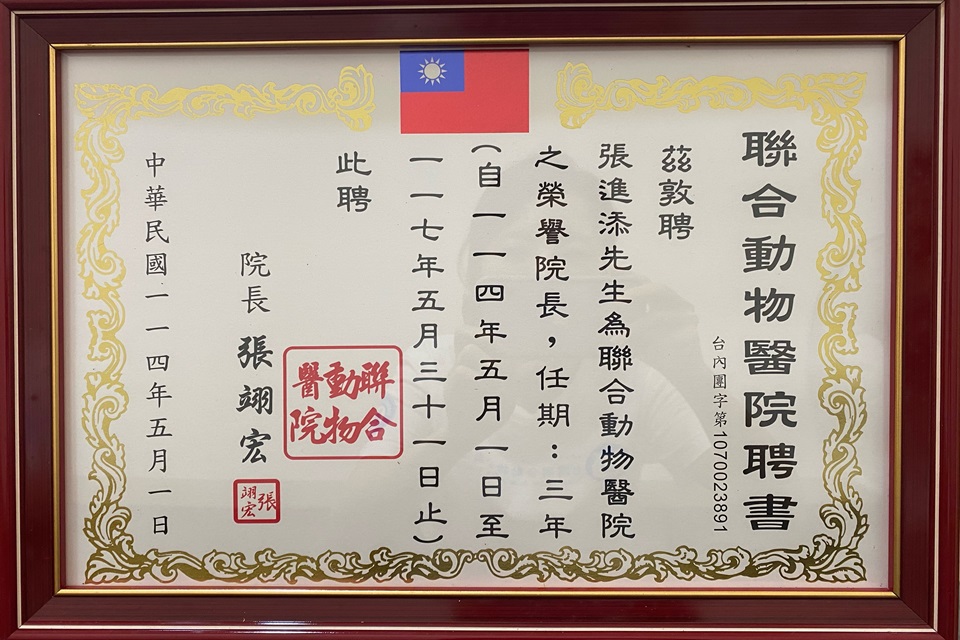 聯合動物醫院聘書
台內團字第1070023891
茲敦聘
張進添先生為聯合動物醫院
之榮譽院長，任期：三年
（自一一四年五月一日至
一一七年五月三十一日止）
此聘
院長 張翊宏
聯合動物醫院
張翊宏
中華民國一一四年五月一日